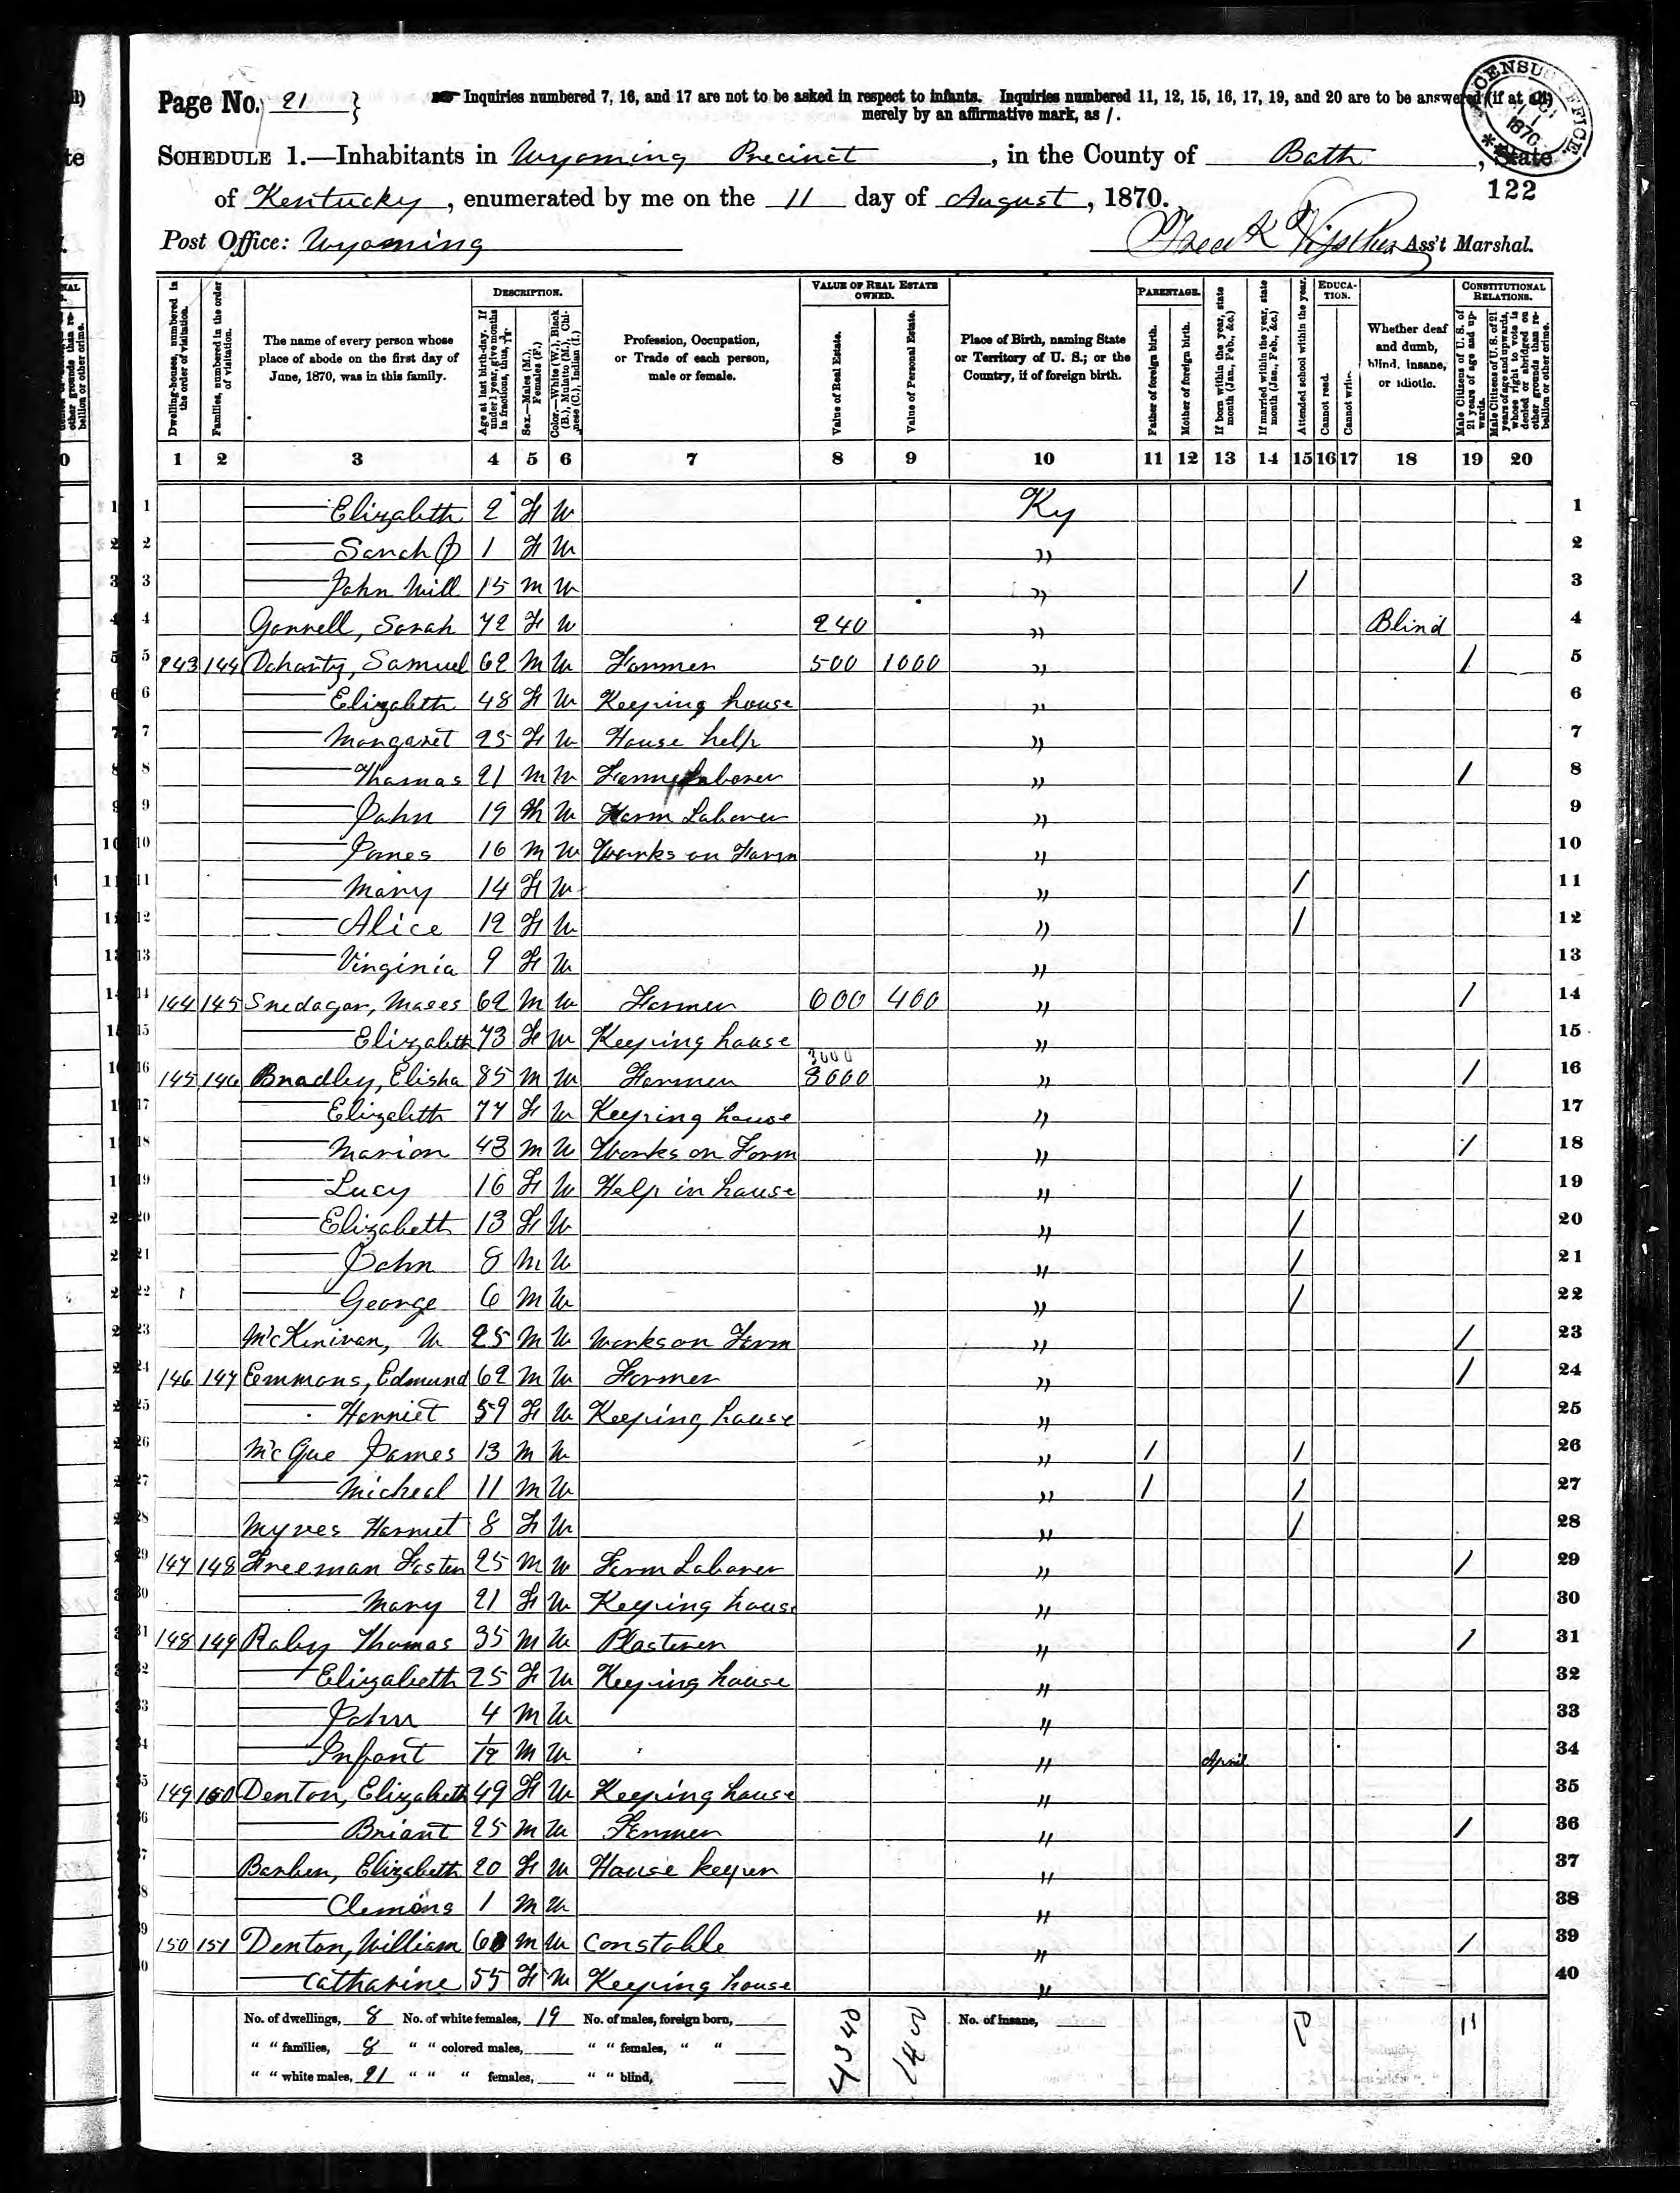 Page No. 21
Inquiries numbered 7, 16, and 17 are not to be asked in respect to infants. Inquiries numbered 11, 12, 15, 16, 17, 19, and 20 are to be answered (if at all)
merely by an affirmative mark, as /.
CENSUS OFFICE 1870
SCHEDULE 1.—Inhabitants in Wyoming Precinct, in the County of Bath, State
of Kentucky, enumerated by me on the 11 day of August, 1870.
122
Post Office: Wyoming
Ass't Marshal.
Dwelling-houses, numbered in the order of visitation.
Families, numbered in the order of visitation.
The name of every person whose place of abode on the first day of June, 1870, was in this family.
DESCRIPTION.
Age at last birth-day. If under 1 year, give months in fractions, thus,
Sex.—Males (M.), Females (F.)
Color.—White (W.), Black (B.), Mulatto (M.), Chinese (C.), Indian (I.)
Profession, Occupation, or Trade of each person, male or female.
VALUE OF REAL ESTATE OWNED.
Value of Real Estate.
Value of Personal Estate.
Place of Birth, naming State or Territory of U. S.; or the Country, if of foreign birth.
PARENTAGE.
Father of foreign birth.
Mother of foreign birth.
If born within the year, state month (Jan., Feb., &c.)
If married within the year, state month (Jan., Feb., &c.)
Attended school within the year.
EDUCATION.
Cannot read.
Cannot write.
Whether deaf and dumb, blind, insane, or idiotic.
CONSTITUTIONAL RELATIONS.
Male Citizens of U. S. of 21 years of age and upwards.
Male Citizens of U. S. of 21 years of age and upwards, whose right to vote is denied or abridged on other grounds than rebellion or other crime.
1 2 3 4 5 6 7 8 9 10 11 12 13 14 15 16 17 18 19 20
1 Elizabeth 2 F W Ky 1
2 Sarah J 1 F W " 2
3 John Will 15 M W " / 3
4 Gorrell, Sarah 72 F W 240 " Blind 4
5 243 144 Doharty, Samuel 62 M W Farmer 500 1000 " / 5
6 Elizabeth 48 F W Keeping house " 6
7 Margaret 25 F W House help " 7
8 Thomas 21 M W Farm Laborer " / 8
9 John 19 M W Farm Laborer " 9
10 James 16 M W Works on Farm " 10
11 Mary 14 F W " / 11
12 Alice 12 F W " / 12
13 Virginia 9 F W " 13
14 144 145 Snedagar, Moses 62 M W Farmer 600 400 " / 14
15 Elizabeth 73 F W Keeping house " 15
3000
16 145 146 Bradley, Elisha 85 M W Farmer 3000 " / 16
17 Elizabeth 77 F W Keeping house " 17
18 Marion 43 M W Works on Farm " / 18
19 Lucy 16 F W Help in house " / 19
20 Elizabeth 13 F W " / 20
21 John 8 M W " / 21
22 George 6 M W " / 22
23 McKinivan, W 25 M W Works on Farm " / 23
24 146 147 Emmons, Edmund 62 M W Farmer " / 24
25 Harriet 59 F W Keeping house " 25
26 McGue James 13 M W " / / 26
27 Micheal 11 M W " / / 27
28 Myres Harriet 8 F W " / 28
29 147 148 Freeman Foster 25 M W Farm Laborer " / 29
30 Mary 21 F W Keeping house " 30
31 148 149 Raby Thomas 35 M W Plasterer " / 31
32 Elizabeth 25 F W Keeping house " 32
33 John 4 M W " 33
34 Infant 1/12 M W " April 34
35 149 150 Denton, Elizabeth 49 F W Keeping house " 35
36 Briant 25 M W Farmer " / 36
37 Barber, Elizabeth 20 F W House keeper " 37
38 Clemons 1 M W " 38
39 150 151 Denton, William 60 M W Constable " / 39
40 Catharine 55 F W Keeping house " 40
No. of dwellings, 8 No. of white females, 19 No. of males, foreign born, 4340 1400 No. of insane, 10 11
" " families, 8 " " colored males, " " females, " "
" " white males, 21 " " " females, " " blind,